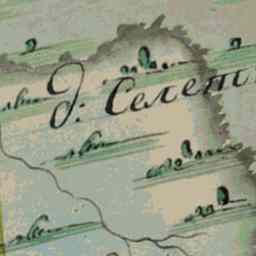 д: Селет